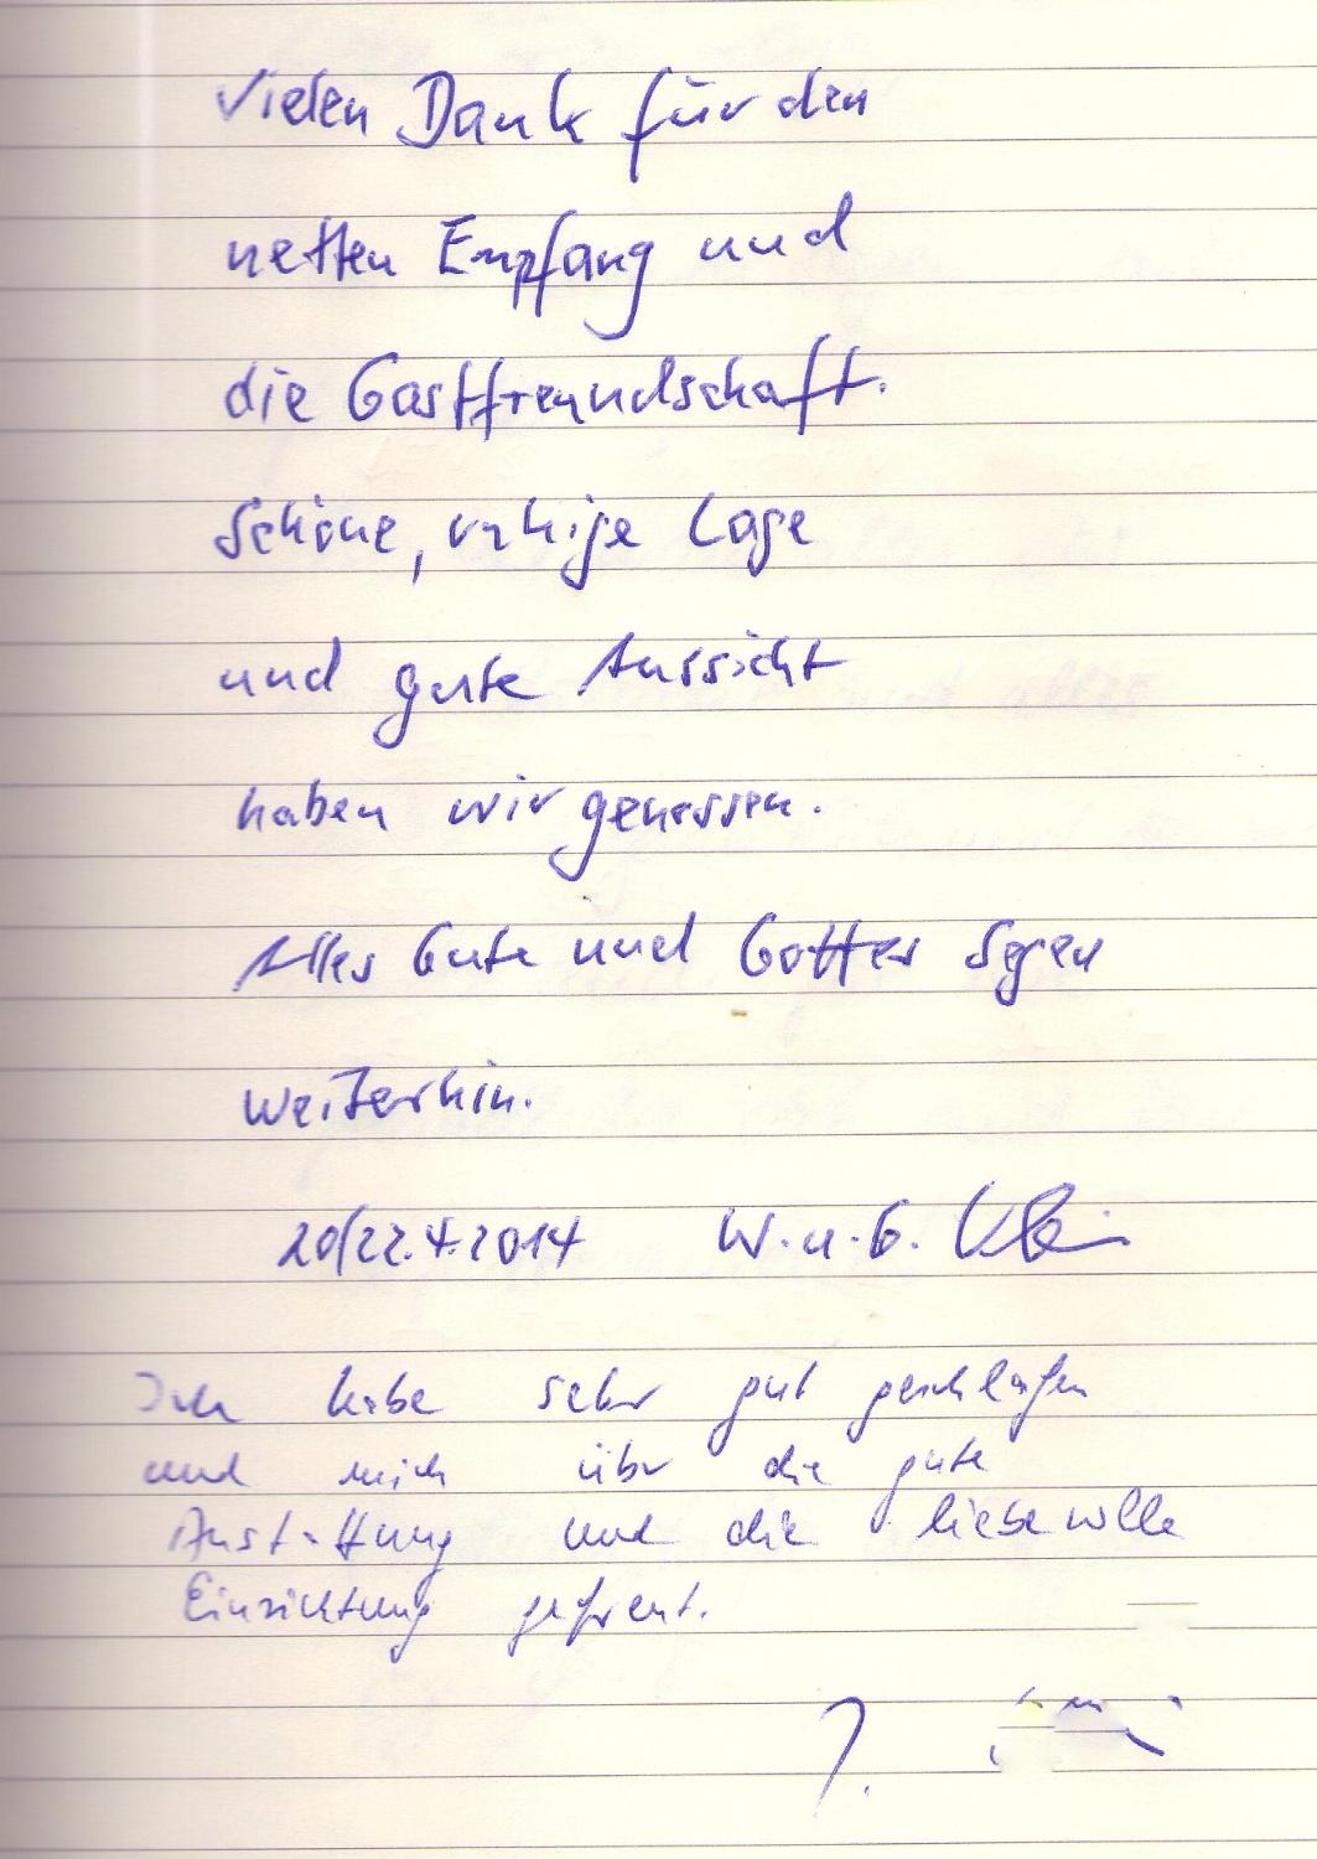 Vielen Dank für den
netten Empfang und
die Gastfreundschaft.
Schöne, ruhige Lage
und gute Aussicht
haben wir genossen.
Alles Gute und Gottes Segen
weiterhin.
20/22.4.2014 W. u. G. Klein
Ich habe sehr gut geschlafen
und mich über die gute
Ausstattung und die liebevolle
Einrichtung gefreut.
J.